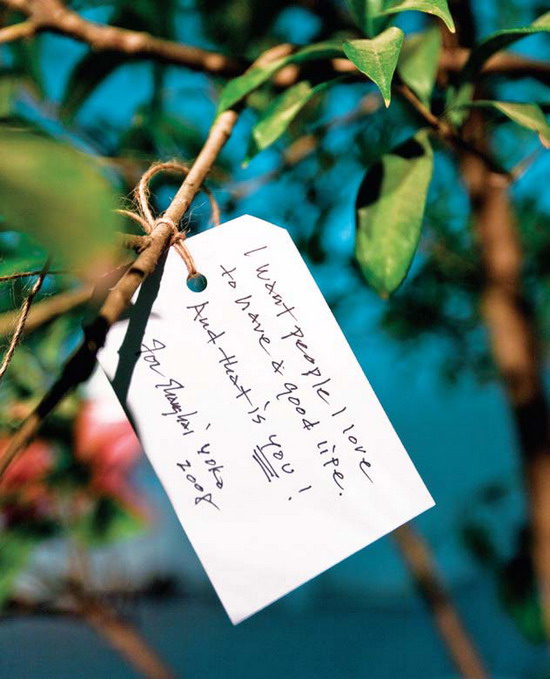 I want people I love
to have a good life.
And that is you!
for Shanghai yoko
2008